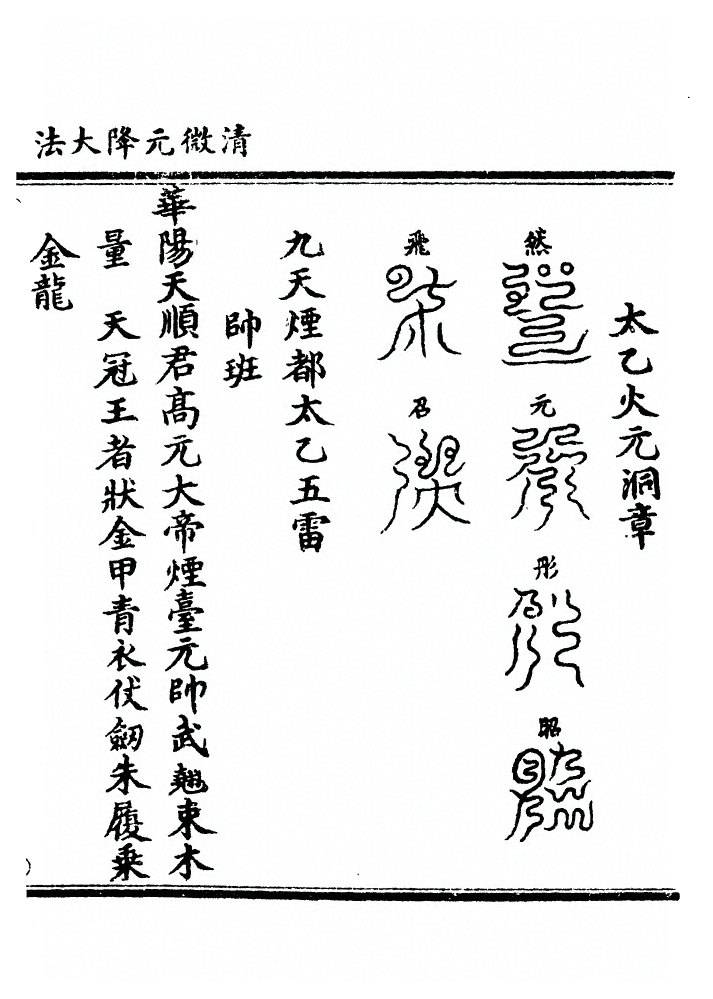 清微元降大法
太乙火元洞章
然 元 彤 昭
飛 召
九天煙都太乙五雷
帥班
華陽天順君髙元大帝煙臺元帥武翹束木
量 天冠王者狀金甲青衣仗劒朱履乗
金龍